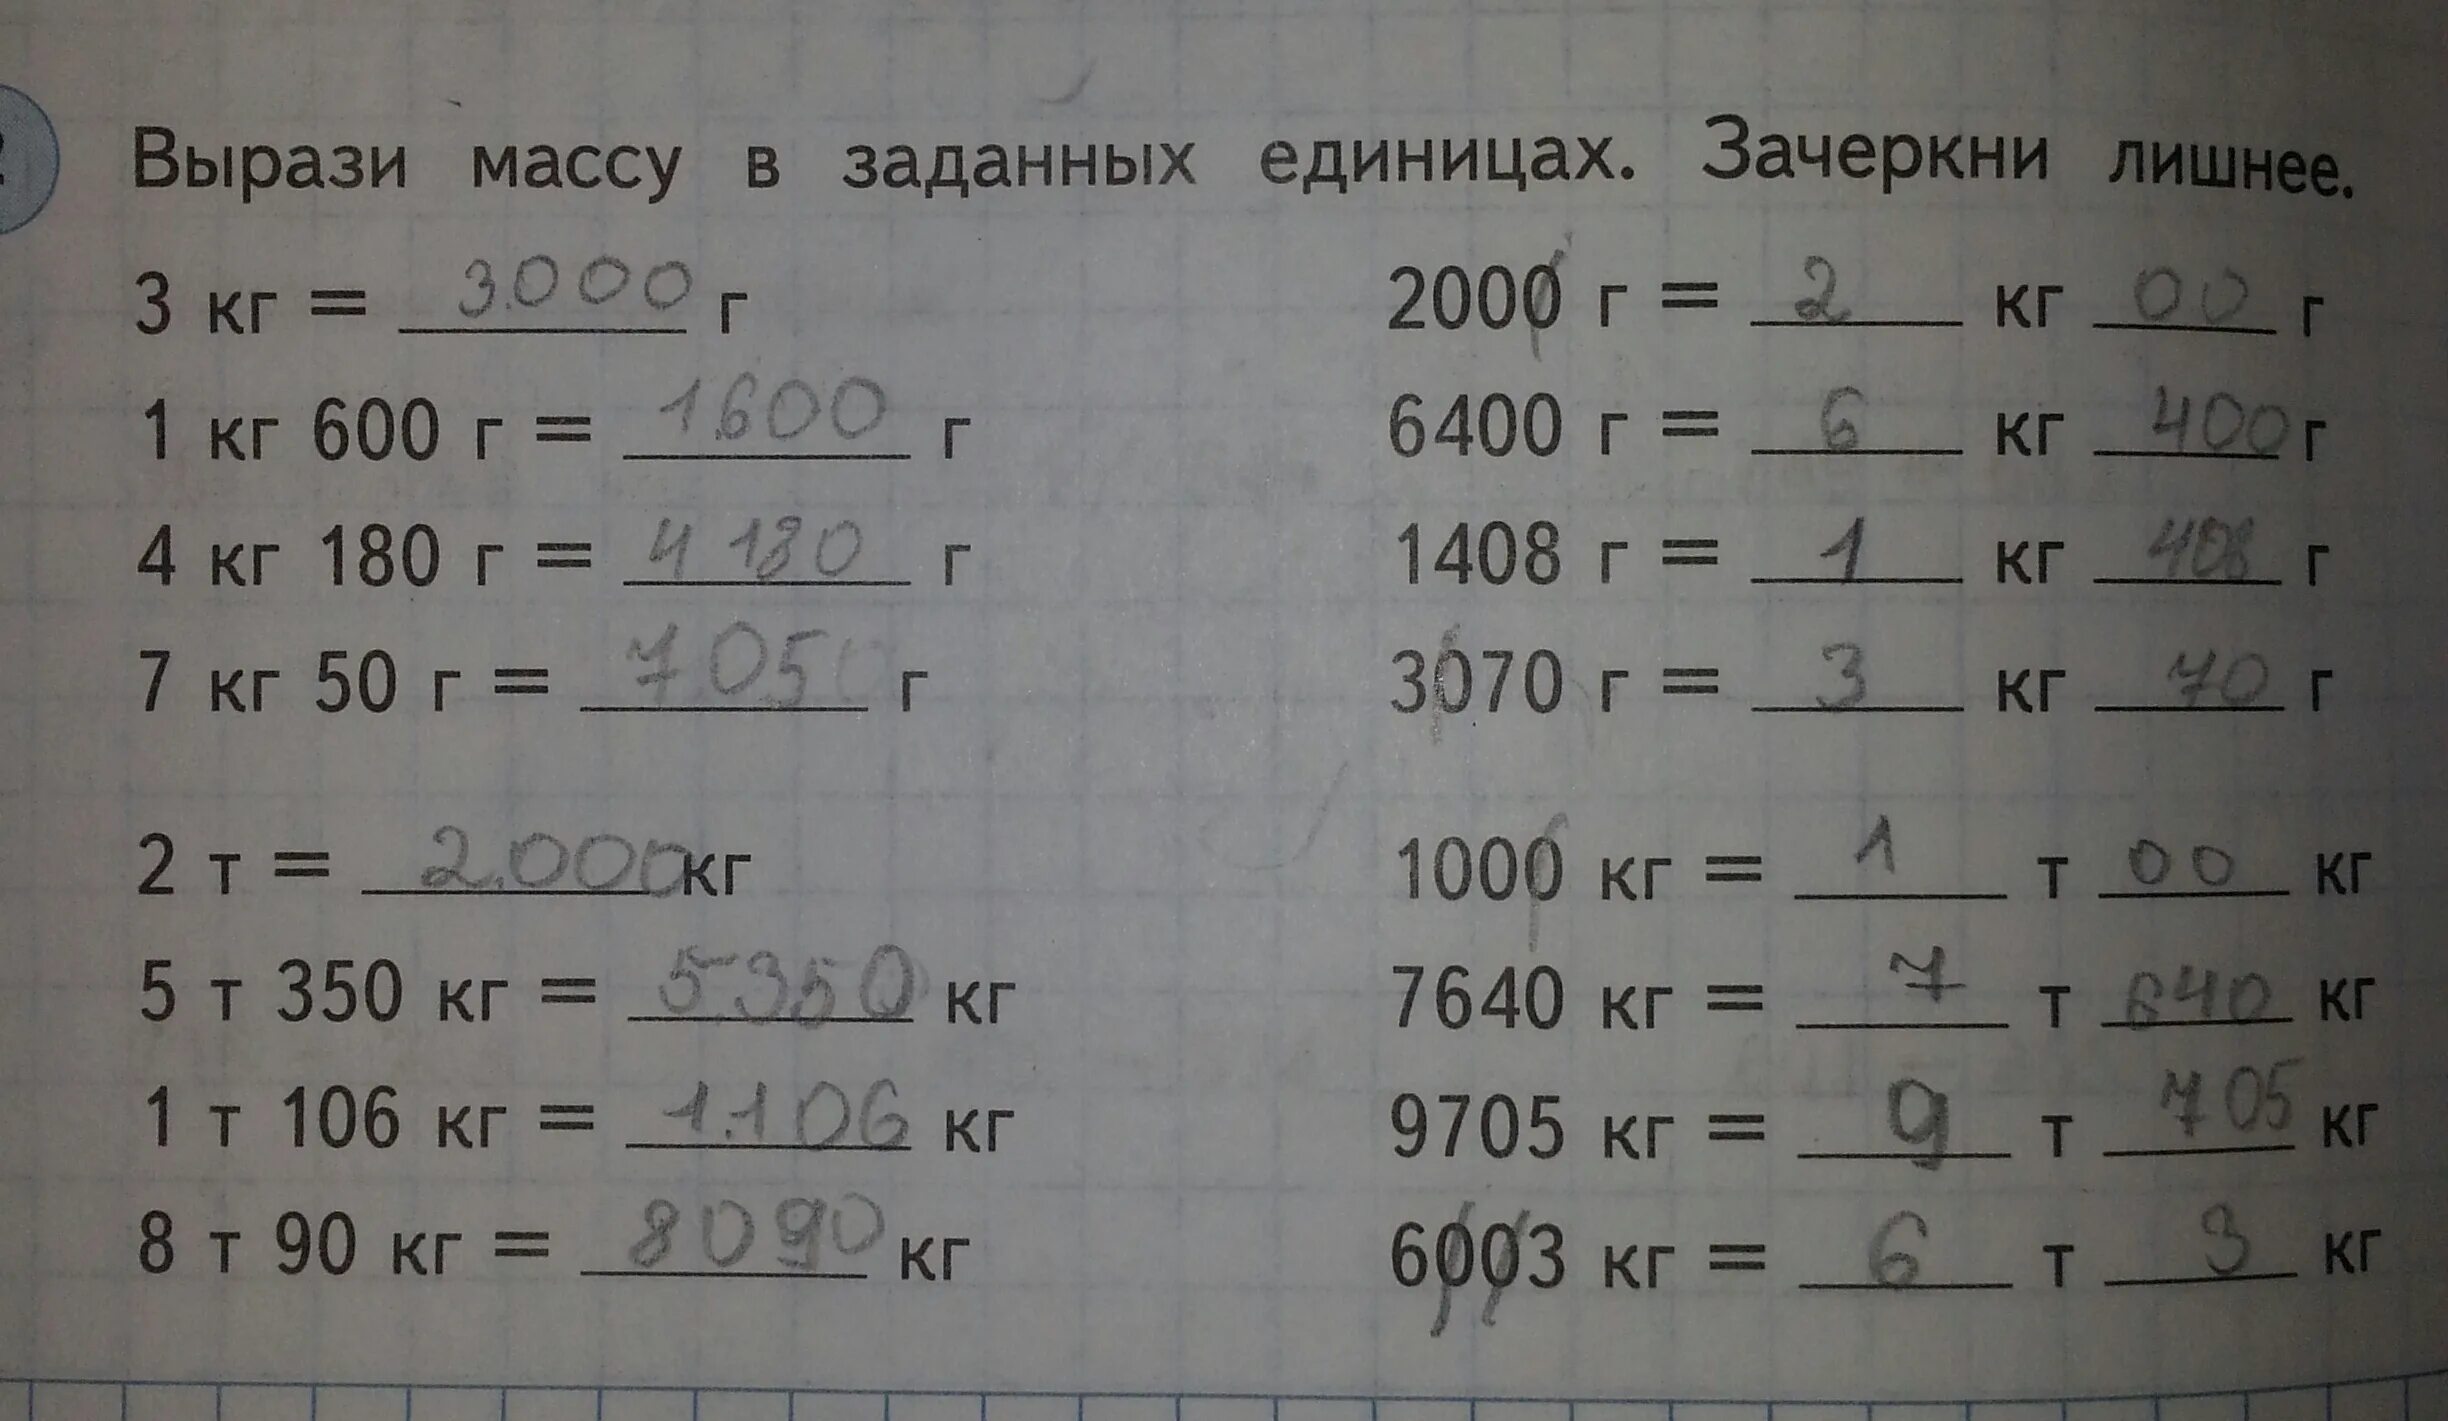 Вырази массу в заданных единицах. Зачеркни лишнее.
3 кг = 3.000 г
1 кг 600 г = 1.600 г
4 кг 180 г = 4 180 г
7 кг 50 г = 7.050 г
2 т = 2.000 кг
5 т 350 кг = 5.350 кг
1 т 106 кг = 1.106 кг
8 т 90 кг = 8090 кг
2000 г = 2 кг 00 г
6400 г = 6 кг 400 г
1408 г = 1 кг 408 г
3070 г = 3 кг 70 г
1000 кг = 1 т 00 кг
7640 кг = 7 т 640 кг
9705 кг = 9 т 705 кг
6003 кг = 6 т 3 кг